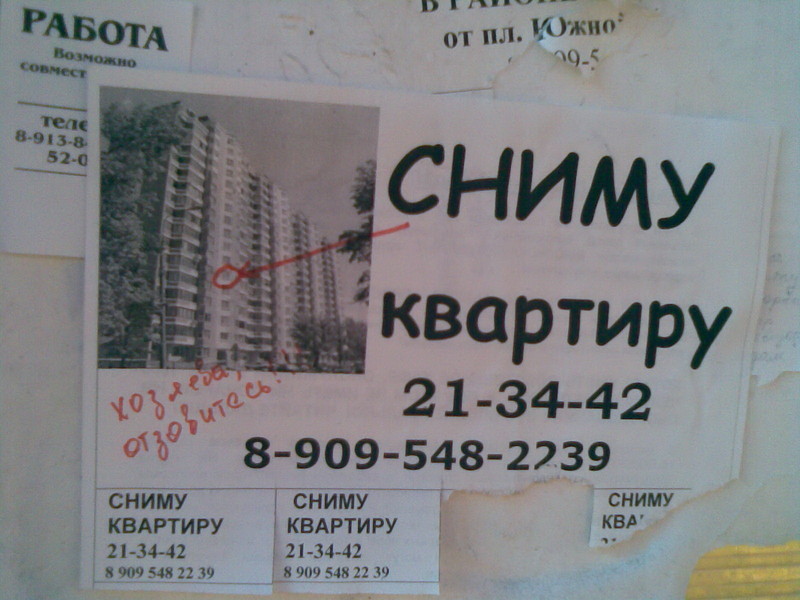 РАБОТА
Возможно
совмест
теле
8-913-8
52-0
В РАЙОНЕ
от пл. Южно
09-5
СНИМУ
квартиру
21-34-42
8-909-548-2239
хозяева,
отзовитесь!!
СНИМУ
КВАРТИРУ
21-34-42
8 909 548 22 39
СНИМУ
КВАРТИРУ
21-34-42
8 909 548 22 39
СНИМУ
КВА